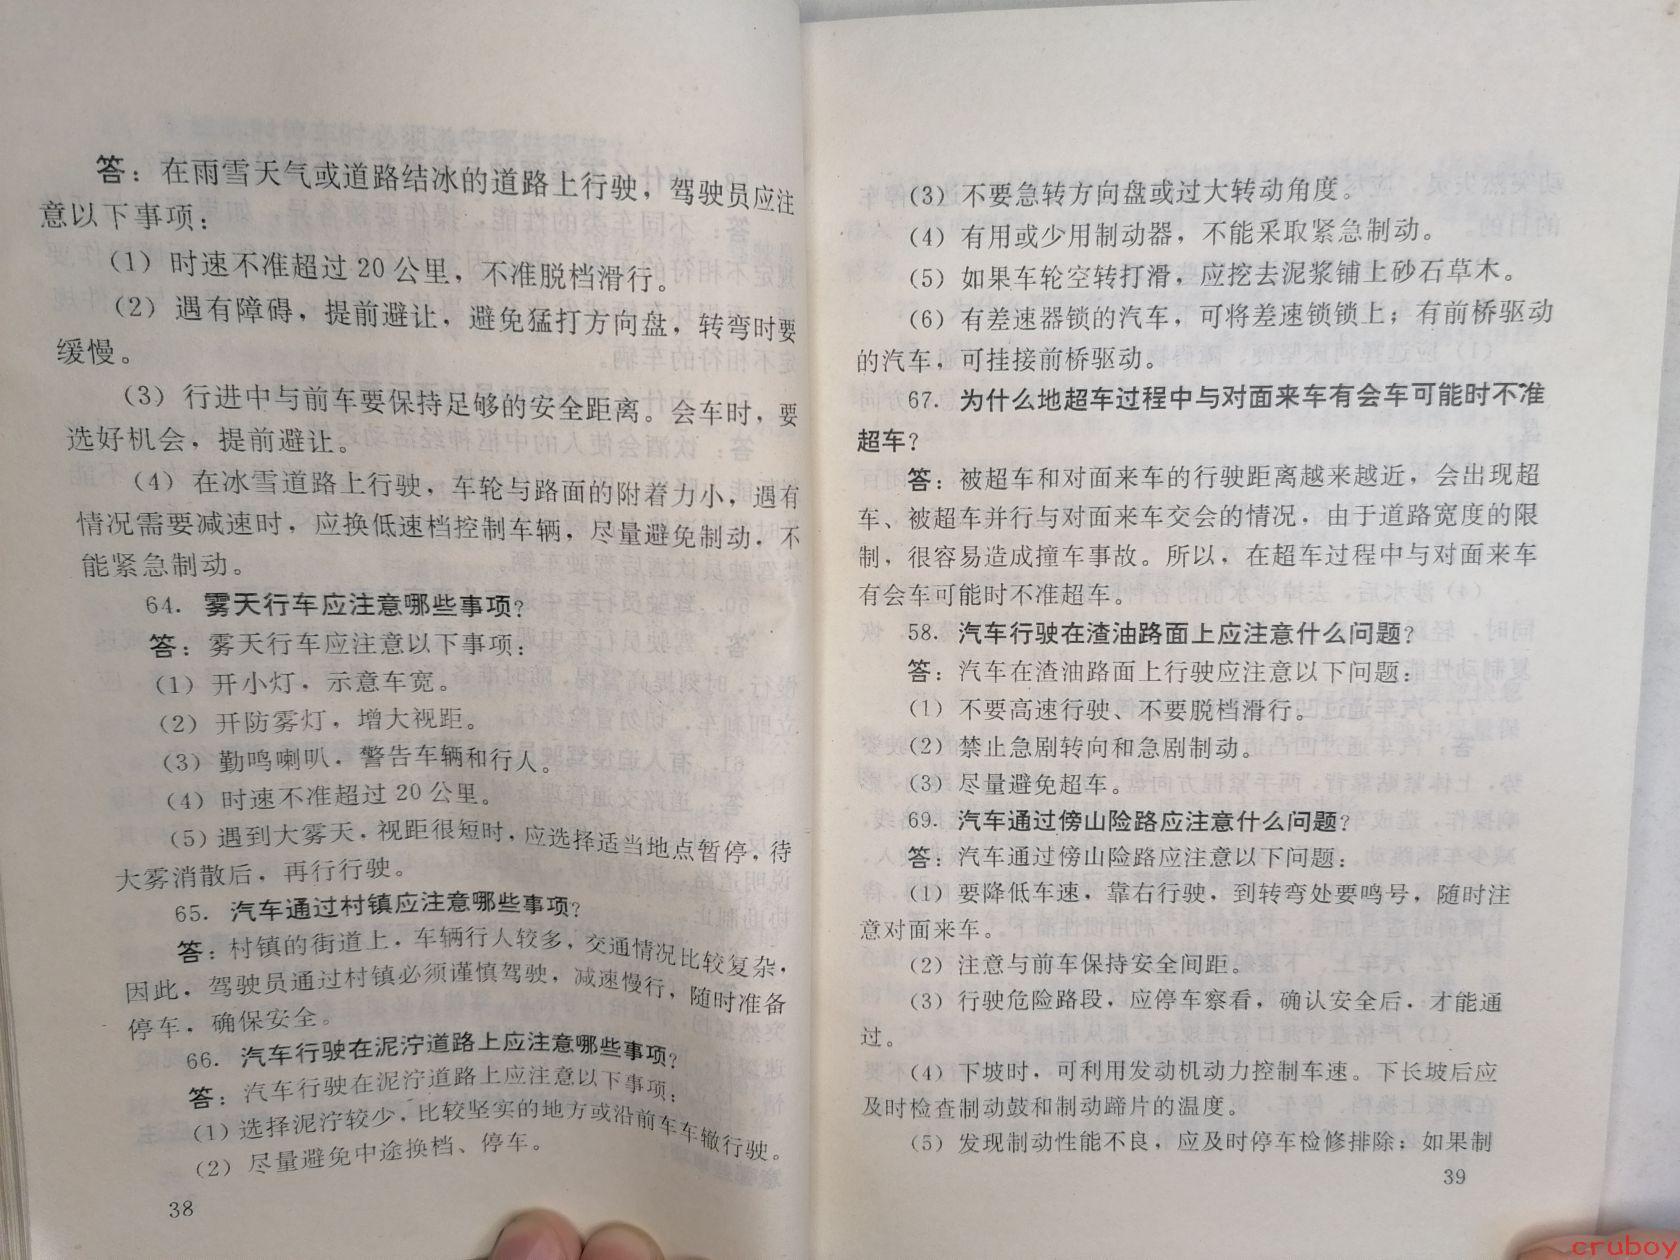 答：在雨雪天气或道路结冰的道路上行驶，驾驶员应注
意以下事项：
（1）时速不准超过20公里，不准脱档滑行。
（2）遇有障碍，提前避让，避免猛打方向盘，转弯时要
缓慢。
（3）行进中与前车要保持足够的安全距离。会车时，要
选好机会，提前避让。
（4）在冰雪道路上行驶，车轮与路面的附着力小，遇有
情况需要减速时，应换低速档控制车辆，尽量避免制动，不
能紧急制动。
64．雾天行车应注意哪些事项？
答：雾天行车应注意以下事项：
（1）开小灯，示意车宽。
（2）开防雾灯，增大视距。
（3）勤鸣喇叭，警告车辆和行人。
（4）时速不准超过20公里。
（5）遇到大雾天，视距很短时，应选择适当地点暂停，待
大雾消散后，再行行驶。
65．汽车通过村镇应注意哪些事项？
答：村镇的街道上，车辆行人较多，交通情况比较复杂，
因此，驾驶员通过村镇必须谨慎驾驶，减速慢行，随时准备
停车，确保安全。
66．汽车行驶在泥泞道路上应注意哪些事项？
答：汽车行驶在泥泞道路上应注意以下事项：
（1）选择泥泞较少，比较坚实的地方或沿前车车辙行驶。
（2）尽量避免中途换档、停车。
38
（3）不要急转方向盘或过大转动角度。
（4）有用或少用制动器，不能采取紧急制动。
（5）如果车轮空转打滑，应挖去泥浆铺上砂石草木。
（6）有差速器锁的汽车，可将差速锁锁上；有前桥驱动
的汽车，可挂接前桥驱动。
67．为什么地超车过程中与对面来车有会车可能时不准
超车？
答：被超车和对面来车的行驶距离越来越近，会出现超
车、被超车并行与对面来车交会的情况，由于道路宽度的限
制，很容易造成撞车事故。所以，在超车过程中与对面来车
有会车可能时不准超车。
58．汽车行驶在渣油路面上应注意什么问题？
答：汽车在渣油路面上行驶应注意以下问题：
（1）不要高速行驶、不要脱档滑行。
（2）禁止急剧转向和急剧制动。
（3）尽量避免超车。
69．汽车通过傍山险路应注意什么问题？
答：汽车通过傍山险路应注意以下问题：
（1）要降低车速，靠右行驶，到转弯处要鸣号，随时注
意对面来车。
（2）注意与前车保持安全间距。
（3）行驶危险路段，应停车察看，确认安全后，才能通
过。
（4）下坡时，可利用发动机动力控制车速。下长坡后应
及时检查制动鼓和制动蹄片的温度。
（5）发现制动性能不良，应及时停车检修排除；如果制
39
cruboy